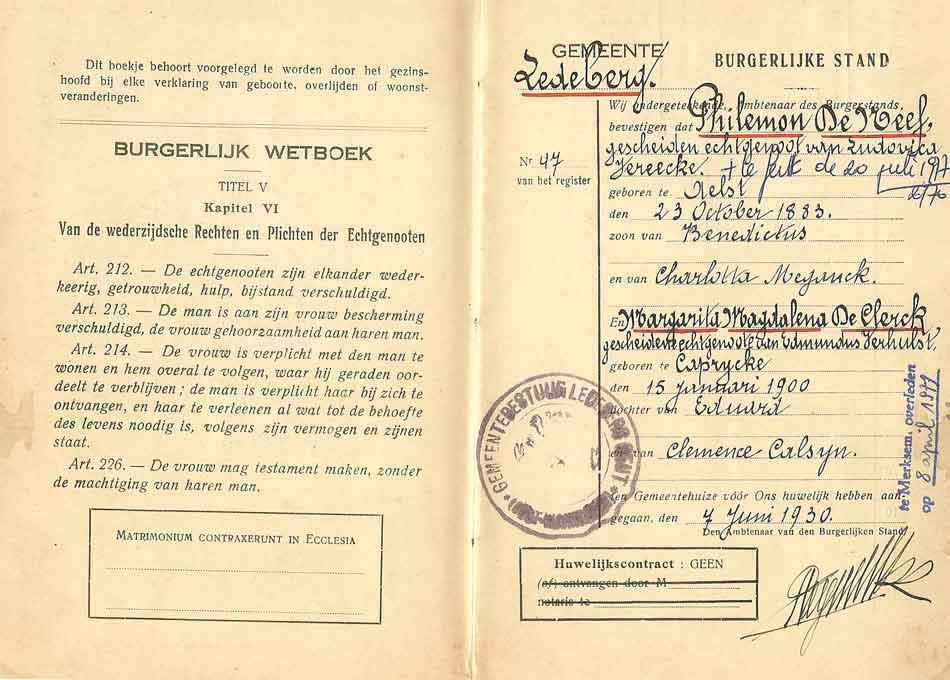 Dit boekje behoort voorgelegd te worden door het gezins-
hoofd bij elke verklaring van geboorte, overlijden of woonst-
veranderingen.
BURGERLIJK WETBOEK
TITEL V
Kapitel VI
Van de wederzijdsche Rechten en Plichten der Echtgenooten
Art. 212. — De echtgenooten zijn elkander weder-
keerig, getrouwheid, hulp, bijstand verschuldigd.
Art. 213. — De man is aan zijn vrouw bescherming
verschuldigd, de vrouw gehoorzaamheid aan haren man.
Art. 214. — De vrouw is verplicht met den man te
wonen en hem overal te volgen, waar hij geraden oor-
deelt te verblijven; de man is verplicht haar bij zich te
ontvangen, en haar te verleenen al wat tot de behoefte
des levens noodig is, volgens zijn vermogen en zijnen
staat.
Art. 226. — De vrouw mag testament maken, zonder
de machtiging van haren man.
MATRIMONIUM CONTRAXERUNT IN ECCLESIA
GEMEENTE
Ledeberg.
BURGERLIJKE STAND
Nr 47
van het register
Wij ondergeteekende, Ambtenaar des Burgerstands,
bevestigen dat Philemon De Neef,
gescheiden echtgenoot van Ludovica
Vereecke. + te de 20 juli 1977
geboren te Aelst
den 23 October 1883.
zoon van Benedictus
en van Charlotta Meganck.
En Margarita Magdalena De Clerck
gescheiden echtgenoote van Edmundus Verhulst.
geboren te Caprycke
den 15 Januari 1900
dochter van Eduard
en van Clemence Calsyn.
ten Gemeentehuize vóór Ons huwelijk hebben aan-
gegaan, den 7 Juni 1930.
Den Ambtenaar van den Burgerlijken Stand
te Merksem. overleden
op 8 april 1979
GEMEENTEBESTUUR LEDEBERG GENT
Huwelijkscontract : GEEN
(of) ontvangen door M
notaris te